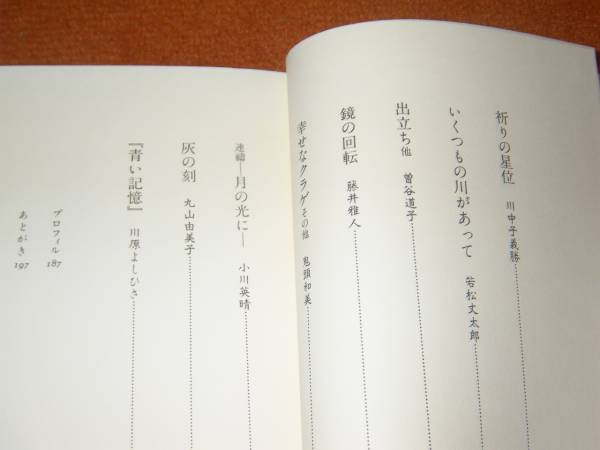 祈りの星位　川中子義勝
いくつもの川があって　若松丈太郎
出立ち 他　曽谷道子
鏡の回転　藤井雅人
幸せなクラゲ その他　鬼頭和美
連禱―月の光に―　小川英晴
灰の刻　丸山由美子
『青い記憶』　川原よしひさ
プロフィル 187
あとがき 197